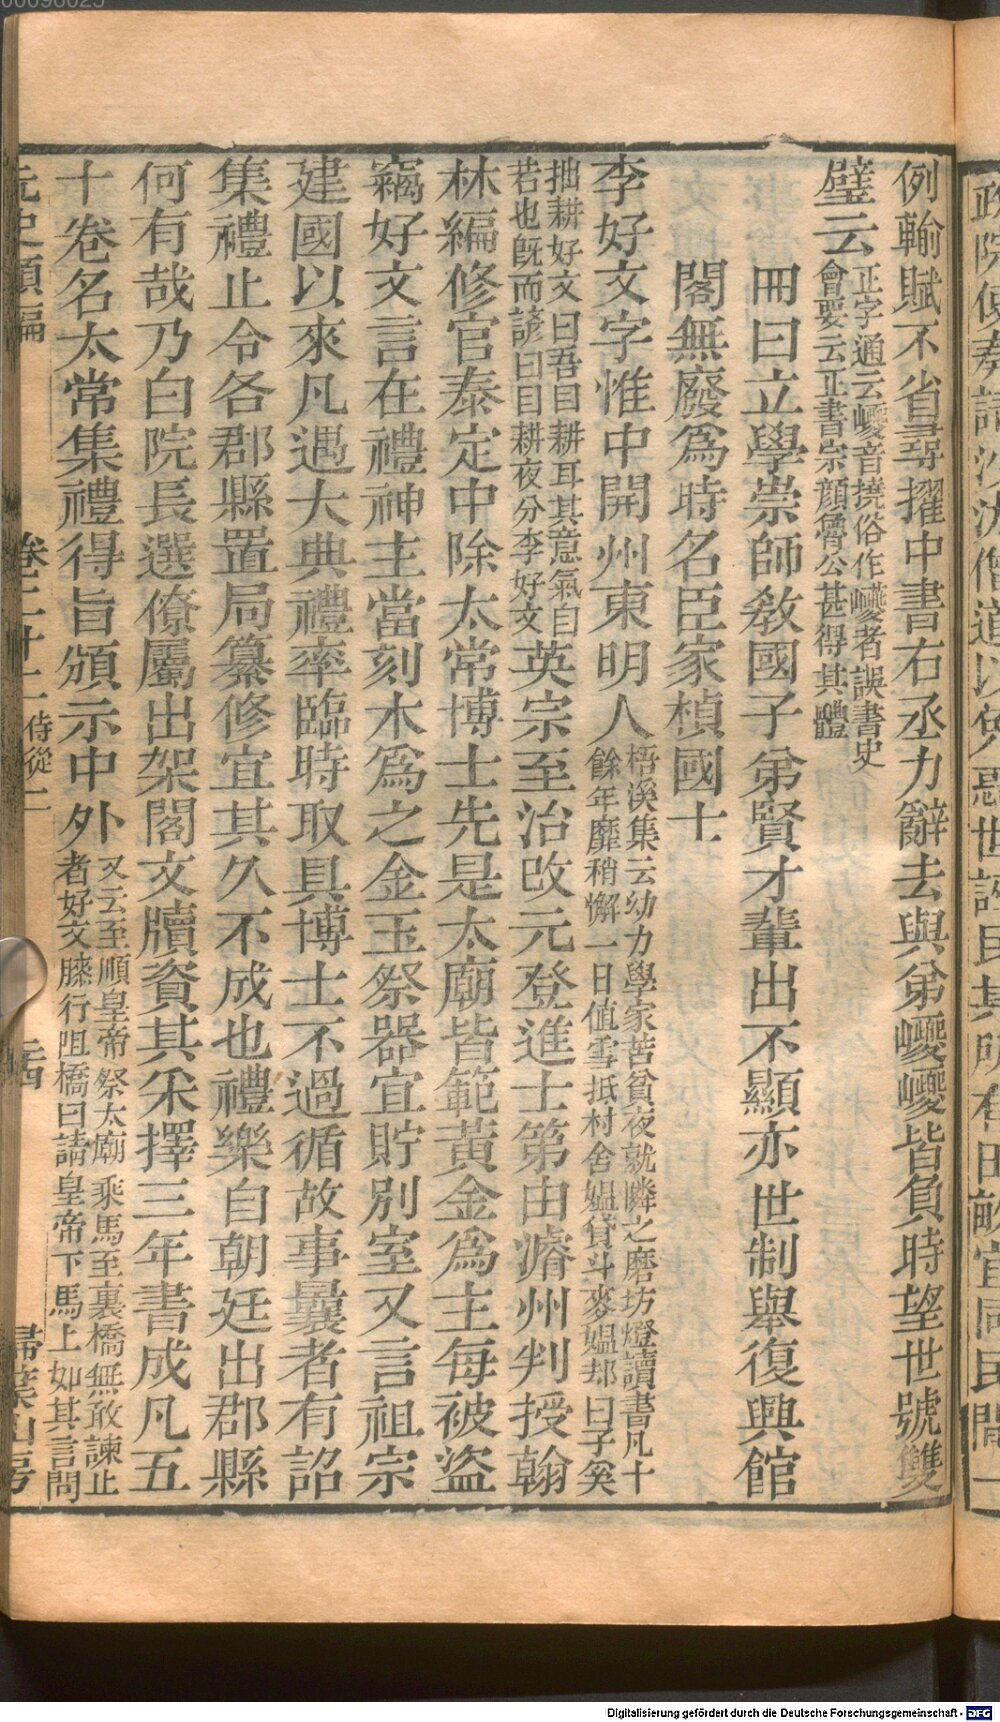 例輸賦不省尋擢中書右丞力辭去與弟巎巎皆負時望世號雙
璧云正字通云巎音撓俗作巙者誤書史會要云正書宗顏魯公甚得其體
冊曰立學崇師敎國子弟賢才輩出不顯亦世制舉復興館
閣無廢爲時名臣家楨國士
李好文字惟中開州東明人梧溪集云幼力學家苦貧夜就隣之磨坊燈讀書凡十餘年靡稍懈一日値雪抵村舍媼貸斗麥媼却曰子奚
拙耕好文曰吾目耕耳其意氣自若也旣而諺曰目耕夜分李好文英宗至治改元登進士第由濬州判授翰
林編修官泰定中除太常博士先是太廟皆範黃金爲主每被盜
竊好文言在禮神主當刻木爲之金玉祭器宜貯別室又言祖宗
建國以來凡遇大典禮率臨時取具博士不過循故事曩者有詔
集禮止令各郡縣置局纂修宜其久不成也禮樂自朝廷出郡縣
何有哉乃白院長選僚屬出架閣文牘資其釆擇三年書成凡五
十卷名太常集禮得旨頒示中外又云至順皇帝祭太廟乘馬至裏橋無敢諫止者好文膝行阻橋曰請皇帝下馬上如其言問
元史類編 卷二十二 侍從二 掃葉山房
Digitalisierung gefördert durch die Deutsche Forschungsgemeinschaft - DFG